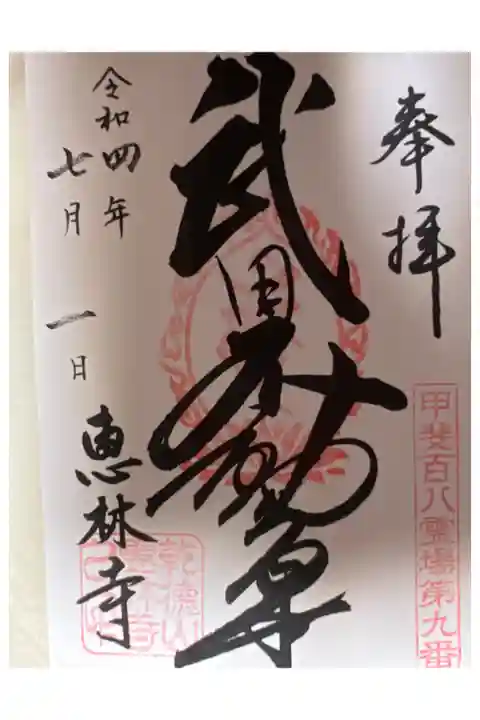 奉拝
甲斐百八霊場第九番
武田不動尊
令和四年
七月一日
恵林寺
乾徳山